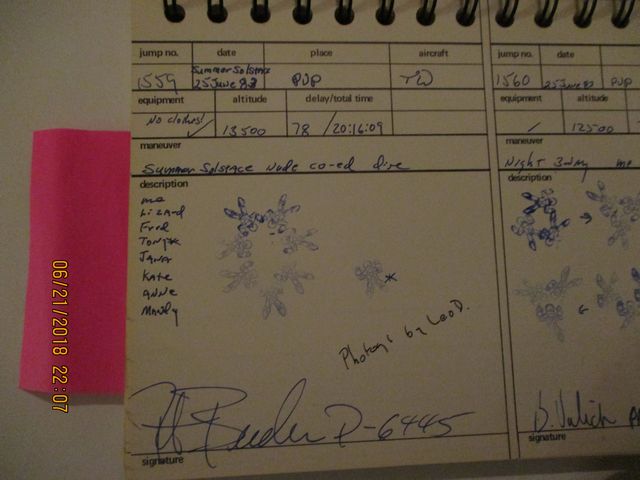 jump no. date place aircraft
1559 Summer Solstace 25 June 83 PVP TW
equipment altitude delay/total time
No clothes! ✓ 13500 78 / 20:16:09
maneuver
Summer Solstace Nude co-ed dive
description
me
Lizard
Fred
Tongue
Jana
Kate
Anne
Mandy
Photog's by Leo D.
D-6445
signature
jump no. date
1560 25 June 83 PVP
equipment altitude
12500
maneuver
Night 3 way
description
signature
06/21/2018 22:07